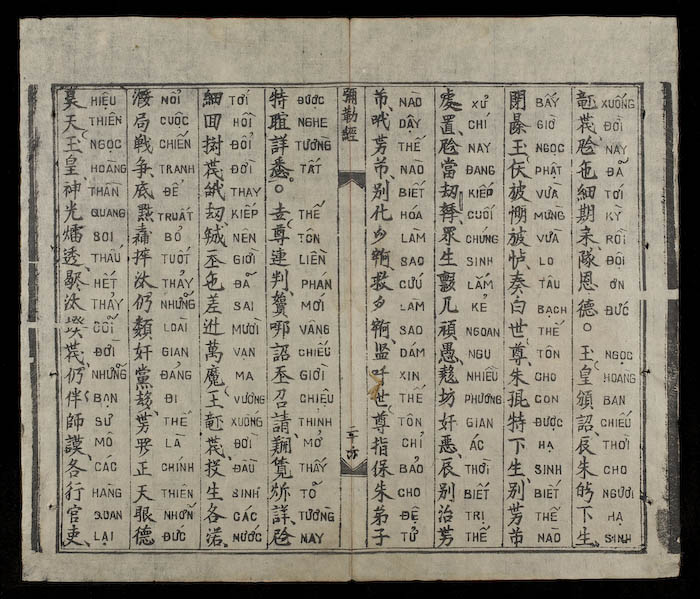 期耒隊恩德。玉皇頒詔辰朱下生
XUỐNG ĐỜI NAY ĐÃ TỚI KỲ RỒI ĐỘI ƠN ĐỨC NGỌC HOANG BAN CHIẾU THỜI CHO NGƯỜI HẠ SINH
閉玉被被奏白世尊朱琨特下生别芳芇
BẤY GIỜ NGỌC PHẬT VƯA MỪNG VƯA LO TÂU BẠCH THẾ TÔN CHO CON ĐƯỢC HẠ SINH BIẾT THẾ NÀO
處置當刼眾生几頑愚坊奸惡辰别治芳
XỬ CHÍ NAY ĐANG KIẾP CUỐI CHÚNG SINH LẮM KẺ NGOAN NGU NHIỀU PHƯƠNG GIAN ÁC THỜI BIẾT TRỊ THẾ
芇哦芳芇别化救吀世尊指保朱弟子
NÀO DẬY THẾ NÀO BIẾT HÓA LÀM SAO CỨU LÀM SAO DÁM XIN THẾ TÔN CHỈ BẢO CHO ĐỆ TỬ
彌勒經
特詳悉。尊連判詔丕召請翻覽炘詳
ĐƯỢC NGHE TƯỜNG TẤT THẾ TÔN LIỀN PHÁN MỚI VÂNG CHIẾU GIỚI CHIỆU THỊNH MỞ THẤY TỎ TƯỜNG NAY
細回刼丕差萬魔王投生各渃
TỚI HỒI ĐỜI THAY KIẾP NÊN GIỜI ĐÃ SAI MƯỜI VẠN MA VƯƠNG XUỐNG ĐỜI ĐẦU SINH CÁC NƯỚC
潑局戰爭底汰仍類奸黨芳正天眼德
NỔI CUỘC CHIẾN TRANH ĐỂ TRUẤT BỎ TUỐT THẢY NHỮNG LOÀI GIAN ĐẢNG ĐI THẾ LÀ CHÍNH THIÊN NHỠN ĐỨC
昊天玉皇神光透歇汰仍伴師謨各行官吏
HIỆU THIÊN NGỌC HOÀNG THẦN QUANG SOI THẤU HẾT THẢY CÕI ĐỜI NHỮNG BẠN SƯ MÔ CÁC HÀNG QUAN LẠI